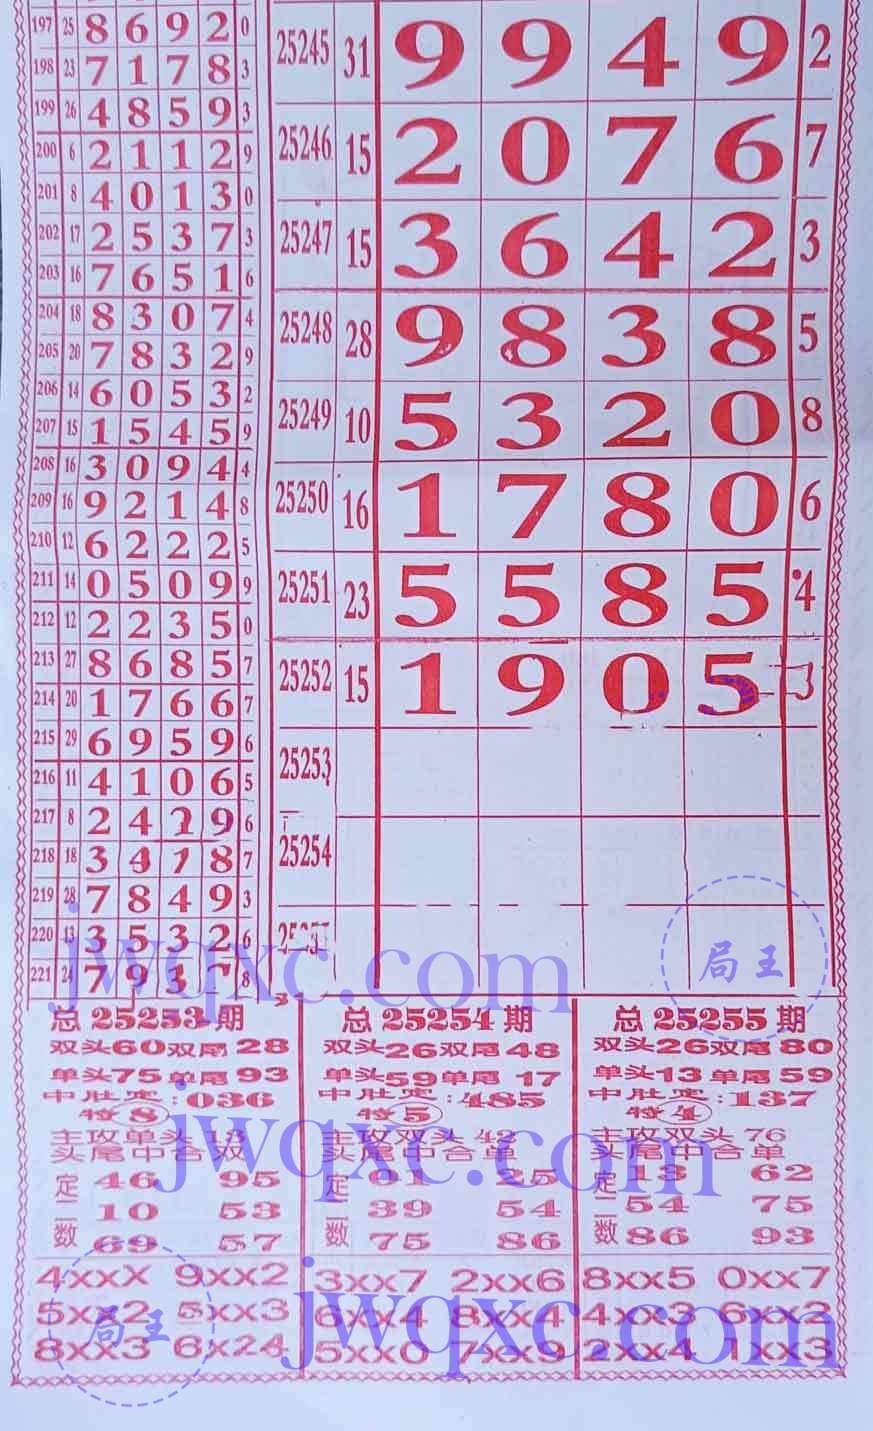 197 25 8 6 9 2 0
198 23 7 1 7 8 3
199 26 4 8 5 9 3
200 6 2 1 1 2 9
201 8 4 0 1 3 0
202 17 2 5 3 7 3
203 16 7 6 5 1 6
204 18 8 3 0 7 4
205 20 7 8 3 2 9
206 14 6 0 5 3 2
207 15 1 5 4 5 9
208 16 3 0 9 4 4
209 16 9 2 1 4 8
210 12 6 2 2 2 5
211 14 0 5 0 9 9
212 12 2 2 3 5 0
213 27 8 6 8 5 7
214 20 1 7 6 6 7
215 29 6 9 5 9 6
216 11 4 1 0 6 5
217 8 2 4 9 6
218 18 3 4 1 8 7
219 28 7 8 4 9 3
220 13 3 5 3 2 6
221 24 7 9 3 8
25245 31 9 9 4 9 2
25246 15 2 0 7 6 7
25247 15 3 6 4 2 3
25248 28 9 8 3 8 5
25249 10 5 3 2 0 8
25250 16 1 7 8 0 6
25251 23 5 5 8 5 4
25252 15 1 9 0 5 3
25253
25254
总25253期
双头60双尾28
单头75单尾93
中肚定:036
特8
主攻单头13
头尾中合双
定二数
46 95
10 53
69 57
4XXX 9XX2
5XX2 5XX3
8XX3 6X24
总25254期
双头26双尾48
单头59单尾17
中肚定:485
特5
主攻双头42
头尾中合单
定二数
61 25
39 54
75 86
3XX7 2XX6
6XX4 8XX4
5XX0 7XX9
总25255期
双头26双尾80
单头13单尾59
中肚定:137
特4
主攻双头76
头尾中合单
定二数
13 62
54 75
86 93
8XX5 0XX7
4XX3 6XX2
2XX4 1XX3
jwqxc.com
局王
jwqxc.com
局王
jwqxc.com